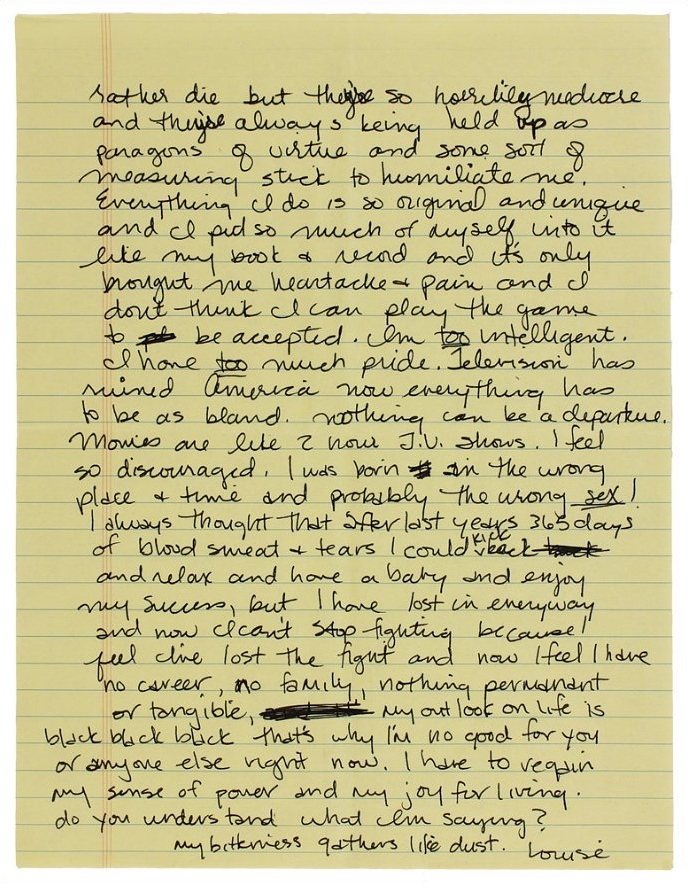 rather die but they're so horribly mediocre
and they're always being held up as
paragons of virtue and some sort of
measuring stick to humiliate me.
Everything I do is so original and unique
and I put so much of myself into it
like my book & record and it's only
brought me heartache & pain and I
don't think I can play the game
to be accepted. I'm too intelligent.
I have too much pride. Television has
ruined America now everything has
to be as bland. nothing can be a departure.
Movies are like 2 hour T.V. shows. I feel
so discouraged. I was born in the wrong
place & time and probably the wrong sex!
I always thought that after last years 365 days
of blood sweat & tears I could kick back
and relax and have a baby and enjoy
my success, but I have lost in everyway
and now I can't stop fighting because I
feel I've lost the fight and now I feel I have
no career, no family, nothing permanant
or tangible, my outlook on life is
black black black that's why I'm no good for you
or anyone else right now. I have to regain
my sense of power and my joy for living.
do you understand what I'm saying?
my bitterness gathers like dust. Louise